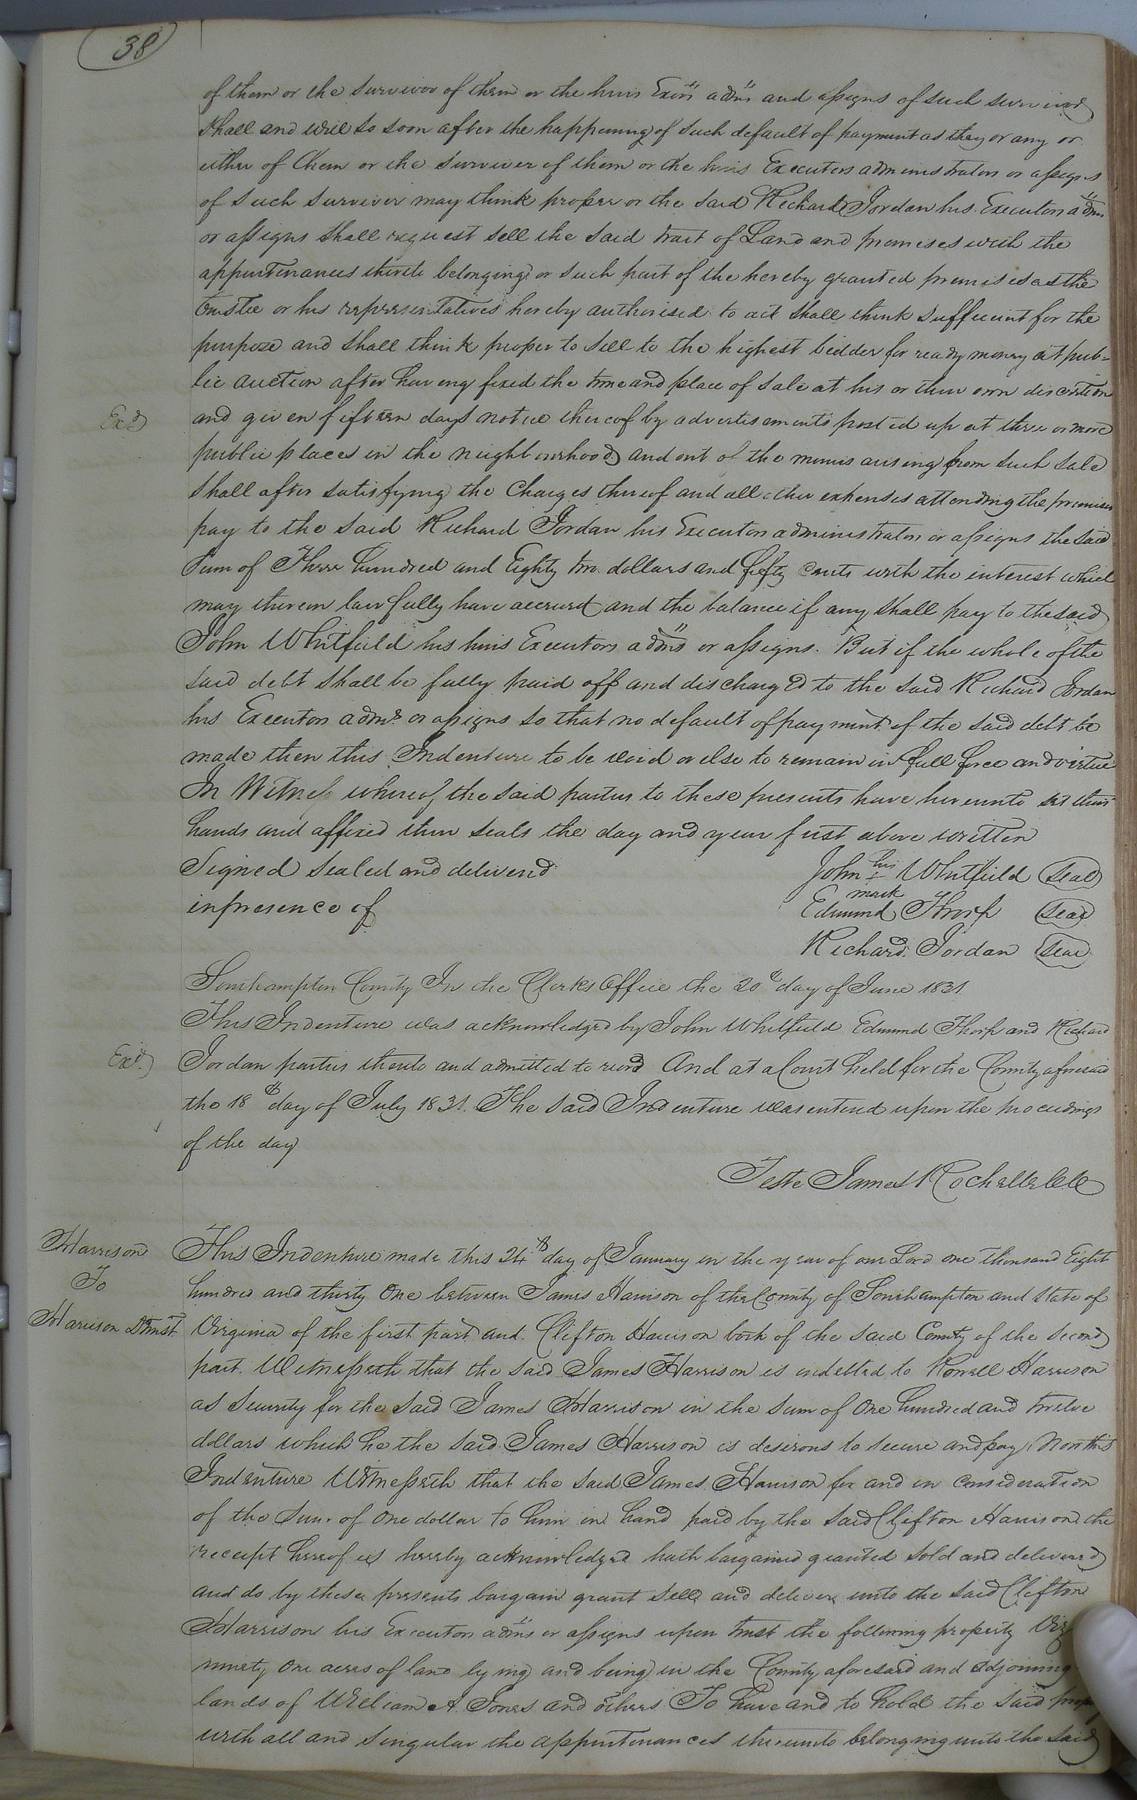 38
of them or the survivor of them or the heirs Exōrs admrs and assigns of such survivor
shall and will so soon after the happening of such default of payment as they or any or
either of them or the survivor of them or the heirs Executors administrators or assigns
of such survivor may think proper or the said Richard Jordan his Executors admrs
or assigns shall request sell the said tract of Land and premises with the
appurtenances thereto belonging or such part of the hereby granted premises as the
trustee or his representatives hereby authorised to act shall think sufficient for the
purpose and shall think proper to sell to the highest bidder for ready money at pub-
lic auction after having fixed the time and place of sale at his or their own discretion
Exd and given fifteen days notice thereof by advertisements posted up at three or more
public places in the neighbourhood and out of the monies arising from such sale
shall after satisfying the Charges thereof and all other expenses attending the premises
pay to the said Richard Jordan his Executors administrators or assigns the said
Sum of Three hundred and Eighty two dollars and fifty cents with the interest which
may thereon lawfully have accrued and the balance if any shall pay to the said
John Whitfield his heirs Executors admrs or assigns. But if the whole of the
said debt shall be fully paid off and discharged to the said Richard Jordan
his Executors admrs or assigns so that no default of payment of the said debt be
made then this Indenture to be void or else to remain in full force and virtue
In Witness whereof the said parties to these presents have hereunto set their
hands and affixed their seals the day and year first above written
Signed Sealed and delivered John his Whitfield (Seal)
mark
in presence of Edmund Thorp (Seal)
Richard Jordan (Seal)
Southampton County In the Clerks Office the 20th day of June 1831
This Indenture was acknowledged by John Whitfield Edmund Thorp and Richard
Exd Jordan parties thereto and admitted to record And at a Court held for the County aforesaid
the 18th day of July 1831. The said Indenture was entered upon the proceedings
of the day
Teste James Rochelle Clk
Harrison This Indenture made this 24th day of January in the year of our Lord one thousand Eight
To hundred and thirty One between James Harrison of the County of Southampton and State of
Harrison D Trust Virginia of the first part and Clifton Harrison both of the said County of the second
part. Witnesseth that the said James Harrison is indebted to Howell Harrison
as Security for the said James Harrison in the sum of One hundred and twelve
dollars which he the said James Harrison is desirous to secure and pay, Now this
Indenture Witnesseth that the said James Harrison for and in consideration
of the Sum of One dollar to him in hand paid by the said Clifton Harrison the
receipt hereof is hereby acknowledged hath bargained granted sold and delivered
and do by these presents bargain grant sell and deliver unto the said Clifton
Harrison his Executors admrs or assigns upon trust the following property
ninety One acres of land lying and being in the County aforesaid and adjoining
lands of William A. Jones and others To have and to hold the said
with all and singular the appurtenances thereunto belonging unto the said